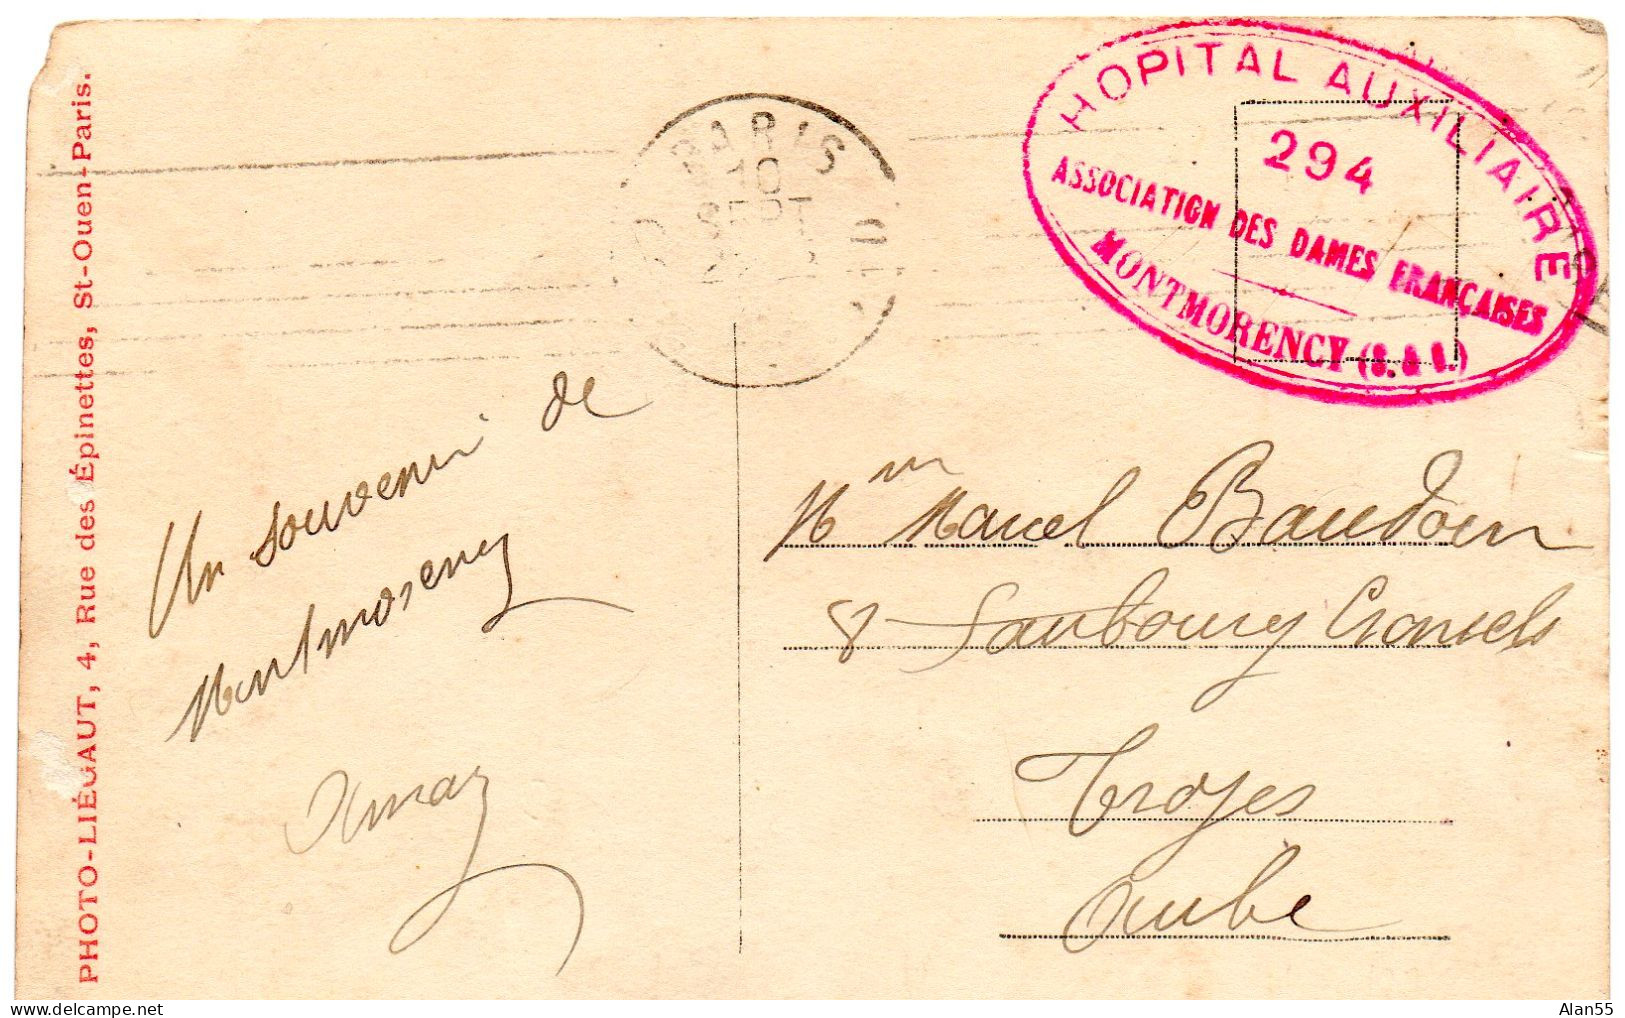 PHOTO-LIÉGAUT, 4, Rue des Épinettes, St-Ouen-Paris.
PARIS
10
SEPT
HOPITAL AUXILIAIRE
294
ASSOCIATION DES DAMES FRANÇAISES
MONTMORENCY (S. & O.)
Un souvenir de
Montmorency
Mm Marcel Baudoin
8 Faubourg Cronsels
Troyes
Aube
Alan55